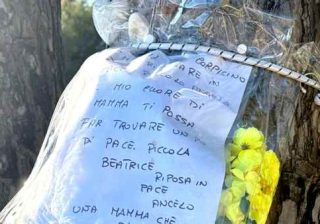 CORPICINO
ARE IN
MIO CUORE DI
MAMMA TI POSSA
FAR TROVARE UN
DI PACE. PICCOLA
BEATRICE
RIPOSA IN
PACE
ANGELO
UNA MAMMA CHE